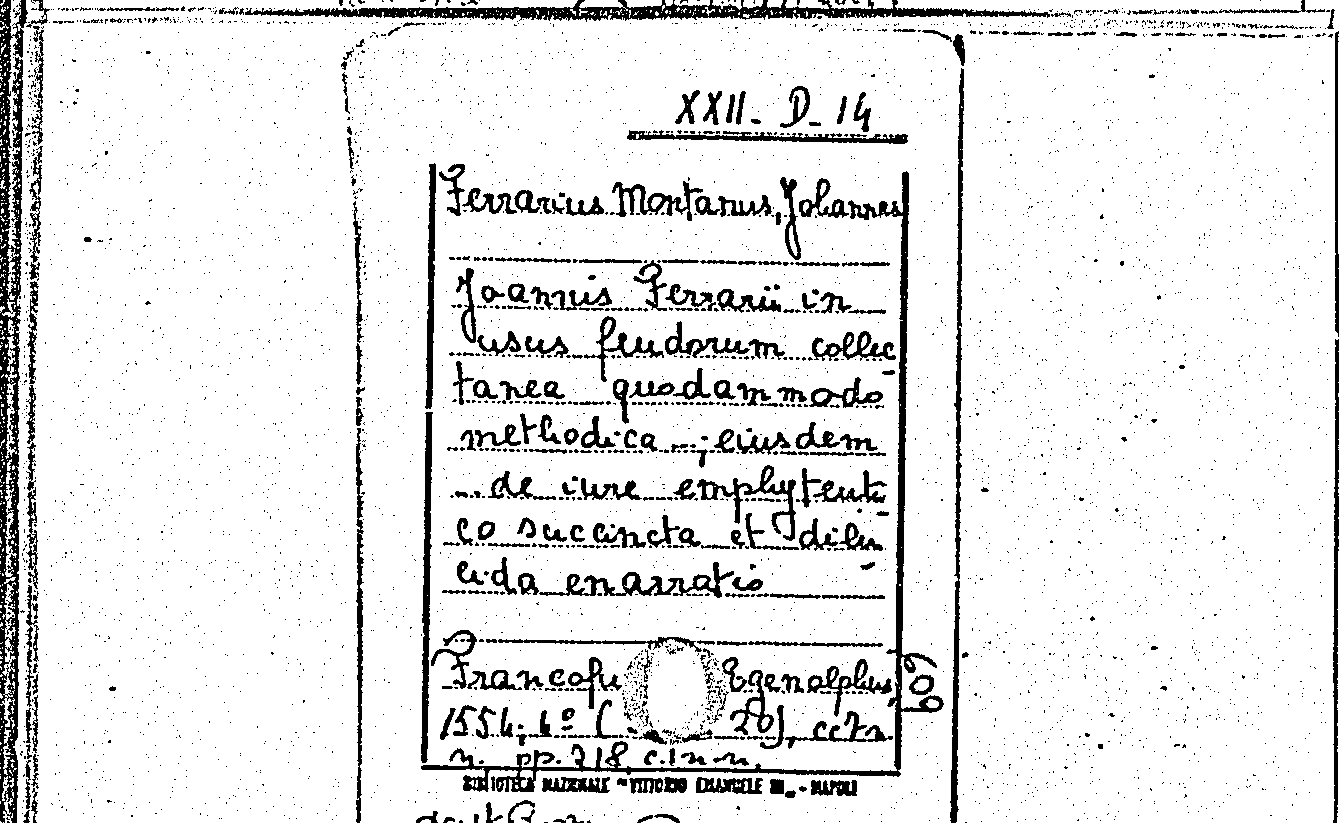 XXII- D- 14
Ferrarius Montanus, Johannes
Joannis Ferrarii in
usus feudorum collec-
tanea quodammodo
methodica ...; eiusdem
... de iure emphyteuti-
co succincta et dilu-
cida enarratio
Francofu Egenolphus,
1554; 4º ( 20), cc7n.
n. pp. 718, c.1n.n.
BIBLIOTECA NAZIONALE "VITTORIO EMANUELE III" - NAPOLI
609